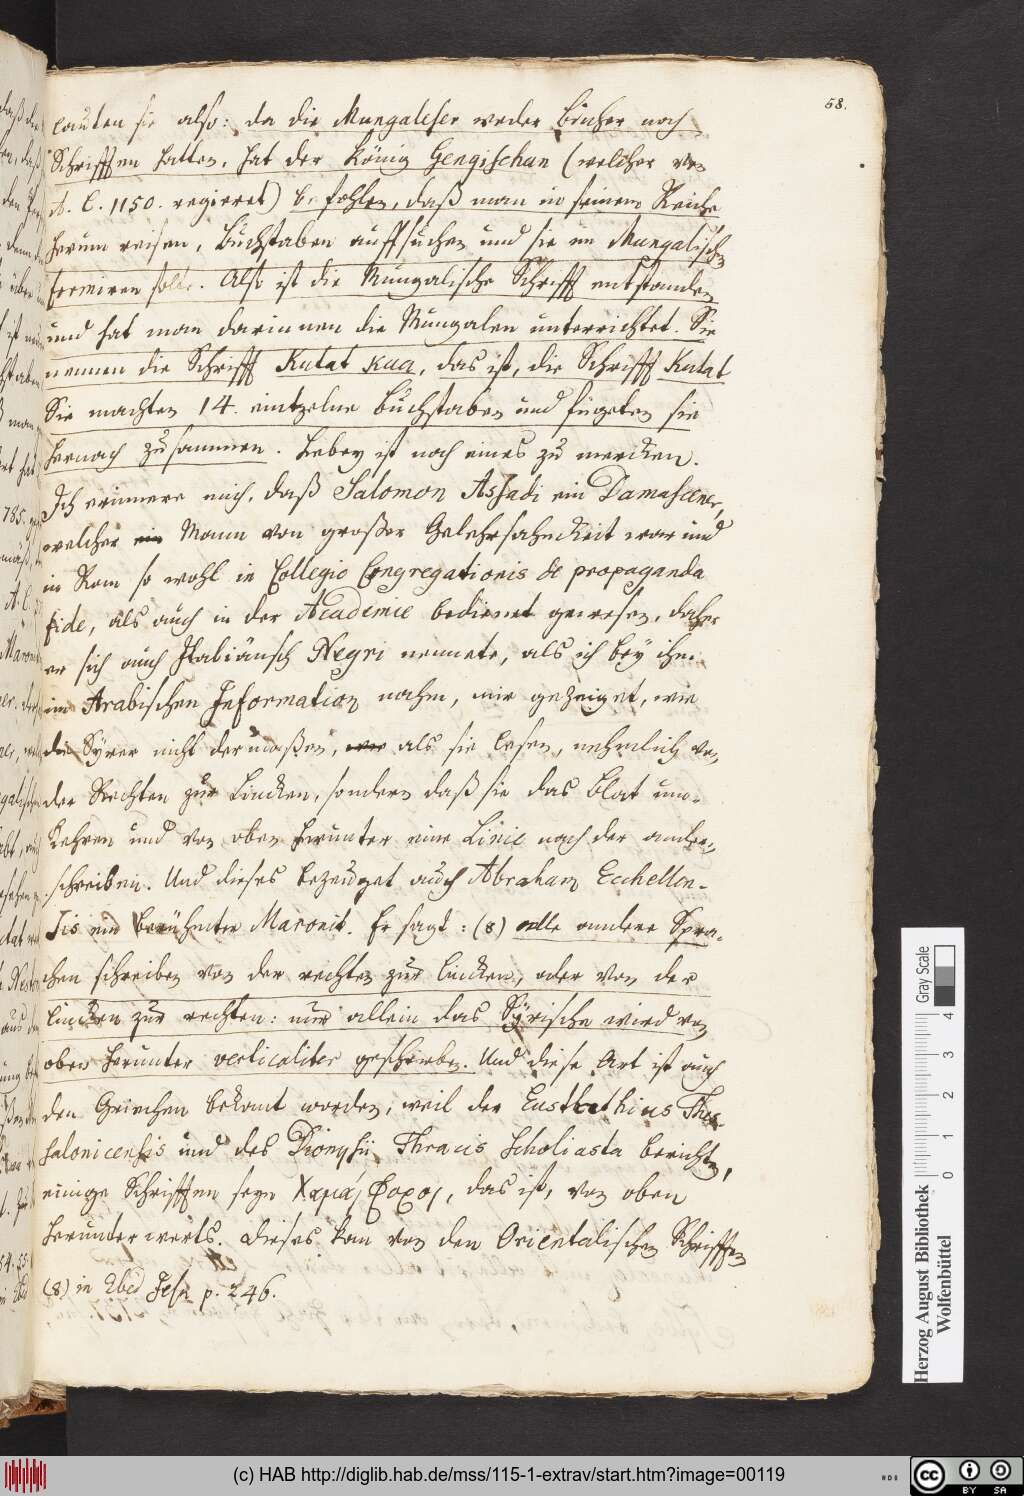 58.
lauten sie also: da die Mungaleser weder bücher noch
Schrifften hatten, hat der König Gengischan (welcher von
A. C. 1150. regieret) befohlen, daß man in seinem Reiche
herum reisen, Buchstaben auffsuchen und sie im Mungalischen
formiren solte. Also ist die Mungalische Schrifft entstanden
und hat man darinnen die Mungalen unterrichtet. Sie
nennen die Schrifft Kutat kua, das ist, die Schrifft Kutat
Sie machten 14. eintzelne Buchstaben und fügeten sie
hernach zusammen. hebey ist noch eines zu mercken.
Ich erinnere mich, daß Salomon Assadi ein Damascener,
welcher ein Mann von großer Gelehrsahmckeit war und
in Rom so wohl in Collegio Congregationis de propaganda
fide, als auch in der Academie bedienet gewesen, daher
er sich auch Italiänisch Negri nennete, als ich bey ihm
im Arabischen Information nahm, mir gezeiget, wie
die Syrer nicht dermaßen, wie als sie lesen, nehmlich von
der Rechten zur Lincken, sondern daß sie das blat um-
kehren und von oben herunter eine Linie nach der andern
schreiben. Und dieses bezeuget auch Abraham Ecchellen-
sis ein berühmter Maronit. Er sagt: (8) alle andere Spra-
chen schreiben von der rechten zur lincken, oder von der
lincken zur rechten: nur allein das Syrische wird von
oben herunter verticaliter geschrieben. Und diese Art ist auch
den Griechen bekant worden, weil der Eustathius Thes-
salonicensis und des Dionysii Thracis Scholiasta berichten,
einige Schrifften seyn Χαμαί Φοροι, das ist, von oben
herunter werts. Dieses kan von den Orientalischen Schrifften
(8) in Ebed Jesu p. 246.
Herzog August Bibliothek
Wolfenbüttel
Gray Scale
0 1 2 3 4
(c) HAB http://diglib.hab.de/mss/115-1-extrav/start.htm?image=00119
cc BY SA